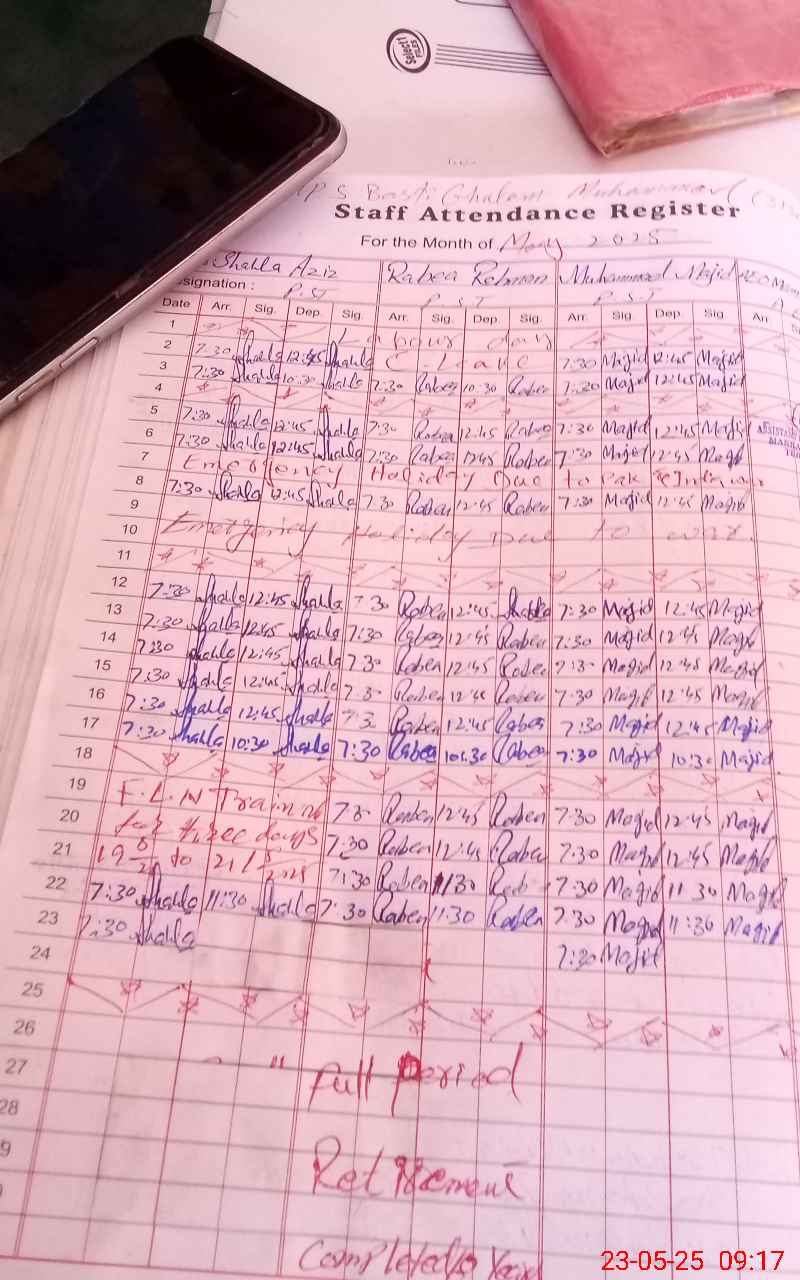 Select!
FILES
P S Basti Ghulam Muhammad
Staff Attendance Register
For the Month of May 2025
Shahla Aziz Rabea Rehman Muhammad Majid
signation : P.S.T P.S.T P.S.T
Date Arr. Sig. Dep. Sig. Arr. Sig. Dep. Sig. Arr. Sig Dep. Sig. Arr
1 Labour day
2 7:30 Shahla 12:45 Shahla C Leave 7:30 Majid 12:45 Majid
3 7:30 Shahla 10:30 Shahla 7:30 Raben 10:30 Raben 7:30 Majid 12:45 Majid
4
5 7:30 Shahla 12:45 Shahla 7:30 Raben 12:45 Raben 7:30 Majid 12:45 Majid
6 7:30 Shahla 12:45 Shahla 7:30 Raben 12:45 Raben 7:30 Majid 12:45 Majid
7 Emergency Holiday Due to Pak war
8 7:30 Shahla 12:45 Shahla 7:30 Raben 12:45 Raben 7:30 Majid 12:45 Majid
9
10 Emergency Holiday Due to war.
11
12 7:30 Shahla 12:45 Shahla 7:30 Raben 12:45 Shahla 7:30 Majid 12:45 Majid
13 7:30 Shahla 12:45 Shahla 7:30 Raben 12:45 Raben 7:30 Majid 12:45 Majid
14 7:30 Shahla 12:45 Shahla 7:30 Raben 12:45 Raben 7:30 Majid 12:45 Majid
15 7:30 Shahla 12:45 Shahla 7:30 Raben 12:45 Raben 7:30 Majid 12:45 Majid
16 7:30 Shahla 12:45 Shahla 7:30 Raben 12:45 Raben 7:30 Majid 12:45 Majid
17 7:30 Shahla 10:30 Shahla 7:30 Raben 10:30 Raben 7:30 Majid 10:30 Majid
18
19 F.L.N Training 7:30 Raben 12:45 Raben 7:30 Majid 12:45 Majid
20 for three days 7:30 Raben 12:45 Raben 7:30 Majid 12:45 Majid
21 19 5/25 to 21/5/2025 7:30 Raben 11:30 Raben 7:30 Majid 11:30 Majid
22 7:30 Shahla 11:30 Shahla 7:30 Raben 11:30 Raben 7:30 Majid 11:30 Majid
23 7:30 Shahla 7:30 Majid
24
25
26
27 " Full Period
28
9 Retirement
Completed
23-05-25 09:17